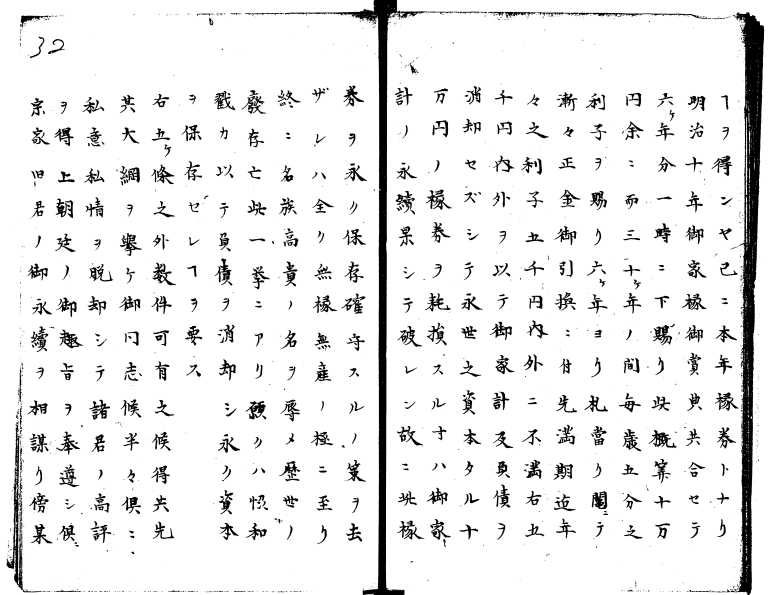 ヿヲ得ンヤ已ニ本年椽券トナリ
明治十年御家椽御賞典共合セテ
六ケ年分一時ニ下賜リ此概算十万
円余ニ而三十ケ年ノ間毎歳五分之
利子ヲ賜リ六ケ年ヨリ札當リ鬮ニテ
漸々正金御引換ニ付先満期迄年
々之利子五千円内外ニ不満右五
千円内外ヲ以テ御家計及負債ヲ
消却セズシテ永世之資本タル十
万円ノ椽券ヲ耗損スルナハ御家
計ノ永續果シテ破レン故ニ此椽
券ヲ永ク保存確守スルノ策ヲ去
ザレハ全ク無椽無産ノ極ニ至リ
終ニ名族高貴ノ名ヲ辱メ歴世ノ
廢存亡此一挙ニアリ願クハ 和
戮力以テ負債ヲ消却シ永ク資本
ヲ保存セレヿヲ要ス
右五ケ條之外数件可有之候得共先
其大綱ヲ擧ケ御同志候半々倶ニ
私意私情ヲ脱却シテ諸君ノ高評
ヲ得上朝廷ノ御趣旨ヲ奉遵シ倶ニ
宗家旧君ノ御永續ヲ相謀リ傍某
32